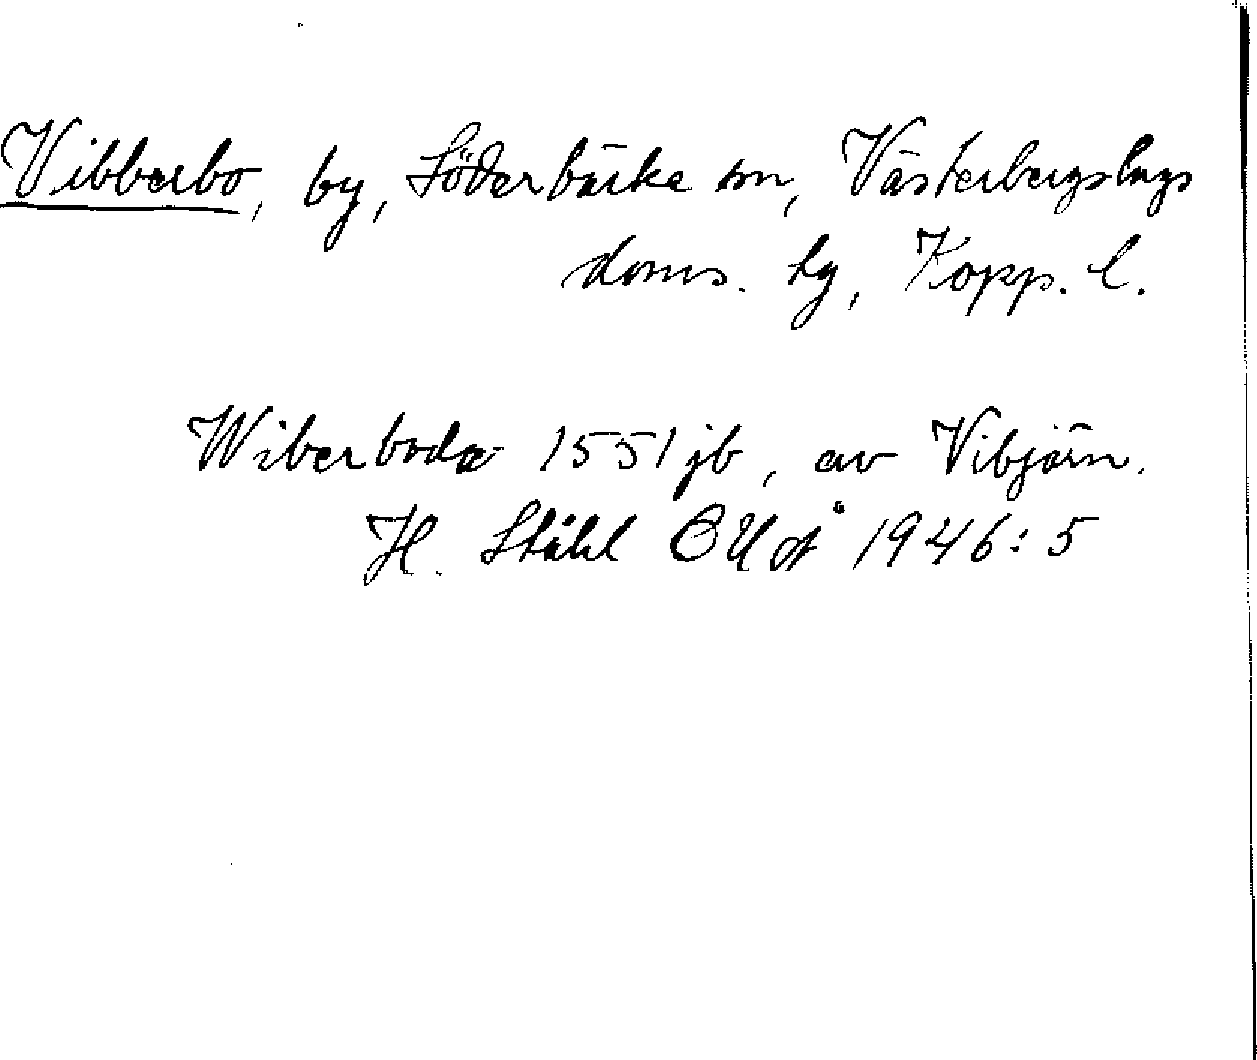 Vibberbo, by, Söderbärke sn, Västerbergslags
doms. hg, Kopp. l.
Wiberboda 1551 jb, av Vibjörn.
H. Ståhl OUÅ 1946:5